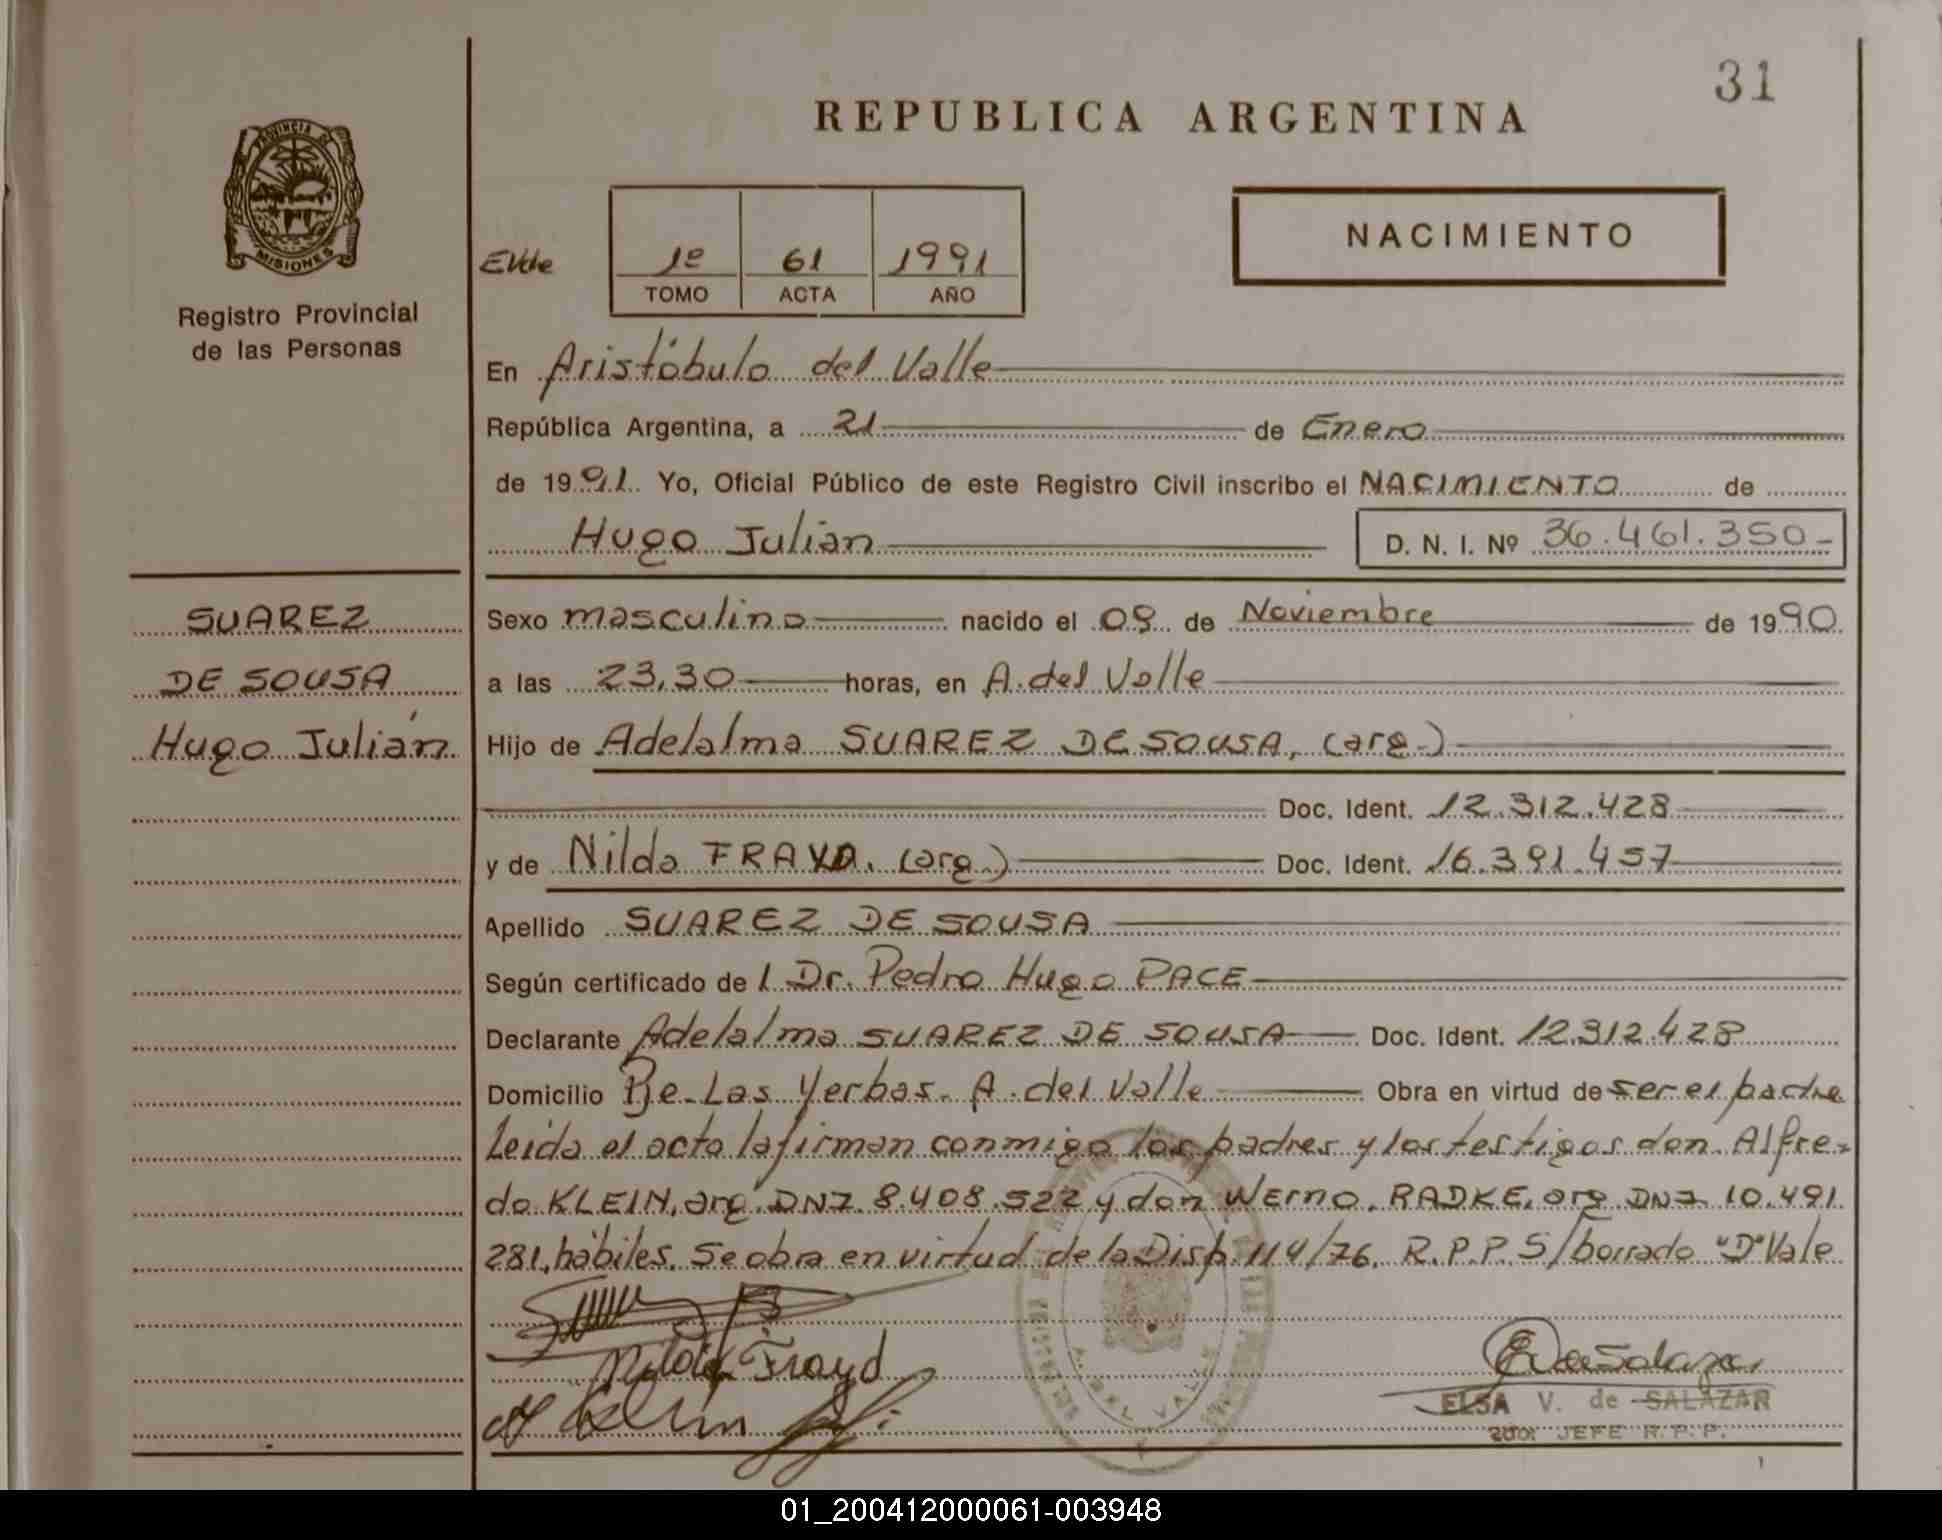 31
REPUBLICA ARGENTINA
PROVINCIA DE
MISIONES
Registro Provincial
de las Personas
NACIMIENTO
1º 61 1991
TOMO ACTA AÑO
En Aristóbulo del Valle
República Argentina, a 21 de Enero
de 1991 Yo, Oficial Público de este Registro Civil inscribo el NACIMIENTO de
Hugo Julián D. N. I. Nº 36.461.350-
SUAREZ
DE SOUSA
Hugo Julián
Sexo masculino nacido el 08 de Noviembre de 1990
a las 23,30 horas, en A. del Valle
Hijo de Adelalma SUAREZ DE SOUSA, (arg.)
Doc. Ident. 12.312.428
y de Nilda (arg.) Doc. Ident. 16.391.457
Apellido SUAREZ DE SOUSA
Según certificado de l Dr. Pedro Hugo PACE
Declarante Adelalma SUAREZ DE SOUSA Doc. Ident. 12.312.428
Domicilio Pje. Las Yerbas. A. del Valle Obra en virtud de ser el padre
Leída el acta la firman conmigo los padres y los testigos don Alfre-
do KLEIN, arg. DNI. 8.408.522 y don Werno RADKE, arg. DNI. 10.491
281, hábiles. Se obra en virtud de la Disp. 114/76. R.P.P. S/borrado "D" Vale
Frayd
ELSA V. de SALAZAR
JEFE R.P.P.
A. DEL VALLE
01_200412000061-003948